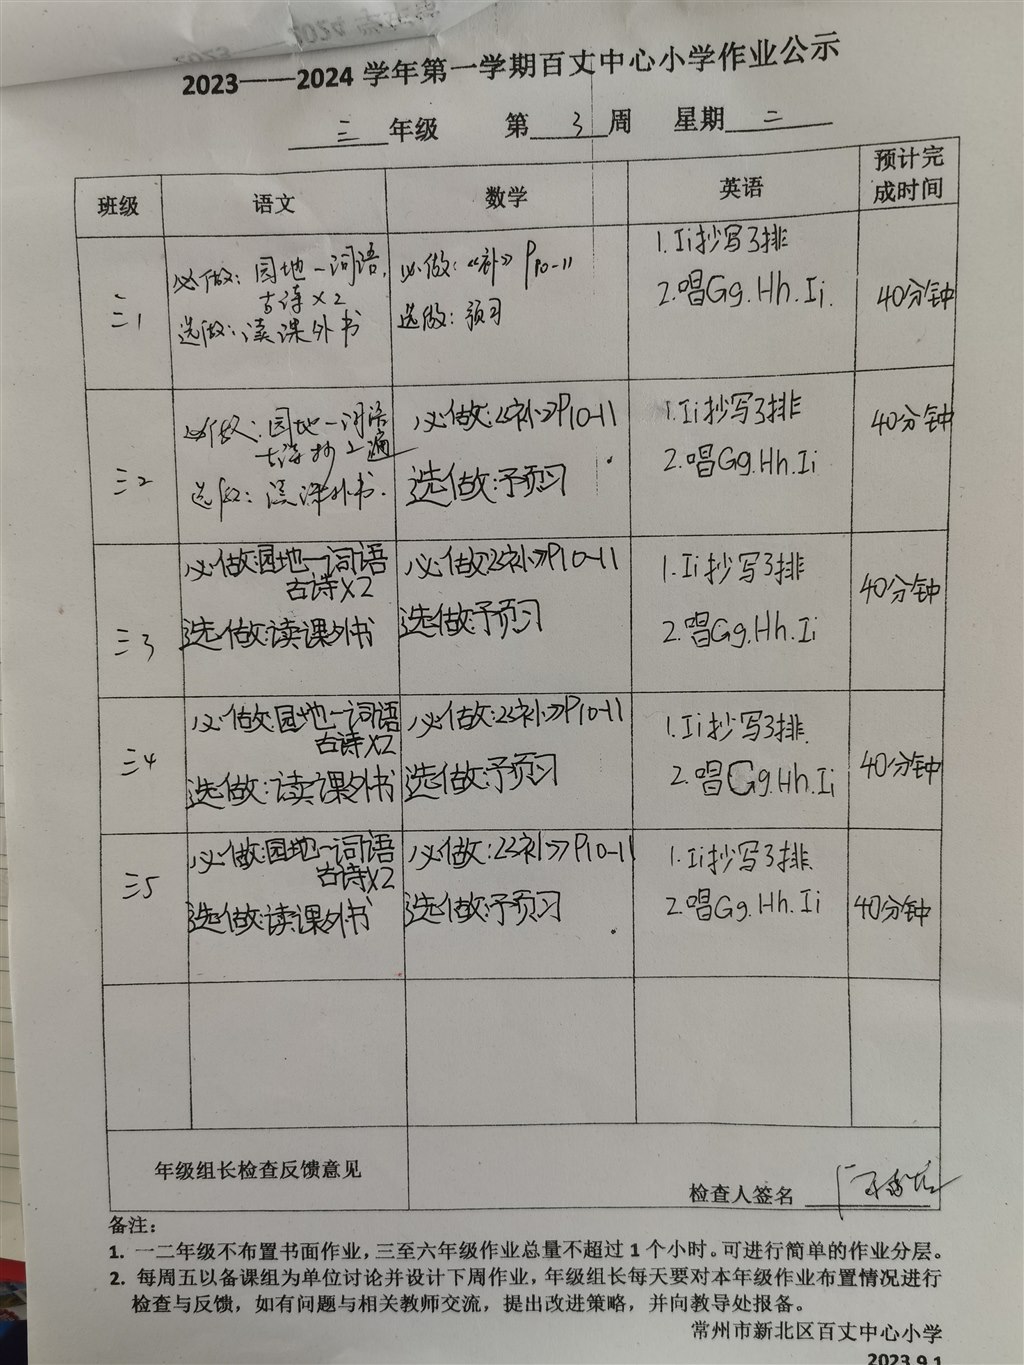 2023——2024 学年第一学期百丈中心小学作业公示
三 年级 第 3 周 星期 二
班级 语文 数学 英语 预计完成时间
三1
必做：园地一词语，
古诗×2
选做：读课外书
必做：《补》P10-11
选做：预习
1.Ii抄写3排
2.唱Gg.Hh.Ii.
40分钟
三2
必做：园地一词语
古诗抄2遍
选做：读课外书.
必做：《补》P10-11
选做：预习
1.Ii抄写3排
2.唱Gg.Hh.Ii
40分钟
三3
必做：园地一词语
古诗×2
选做：读课外书
必做《补》P10-11
选做：预习
1.Ii抄写3排
2.唱Gg.Hh.Ii
40分钟
三4
必做：园地一词语
古诗×2
选做：读课外书
必做：《补》P10-11
选做：预习
1.Ii抄写3排
2.唱Gg.Hh.Ii
40分钟
三5
必做：园地一词语
古诗×2
选做：读课外书
必做：《补》P10-11
选做：预习
1.Ii抄写3排
2.唱Gg.Hh.Ii
40分钟
年级组长检查反馈意见
检查人签名
备注：
1. 一二年级不布置书面作业，三至六年级作业总量不超过 1 个小时。可进行简单的作业分层。
2. 每周五以备课组为单位讨论并设计下周作业，年级组长每天要对本年级作业布置情况进行
检查与反馈，如有问题与相关教师交流，提出改进策略，并向教导处报备。
常州市新北区百丈中心小学
2023.9.1